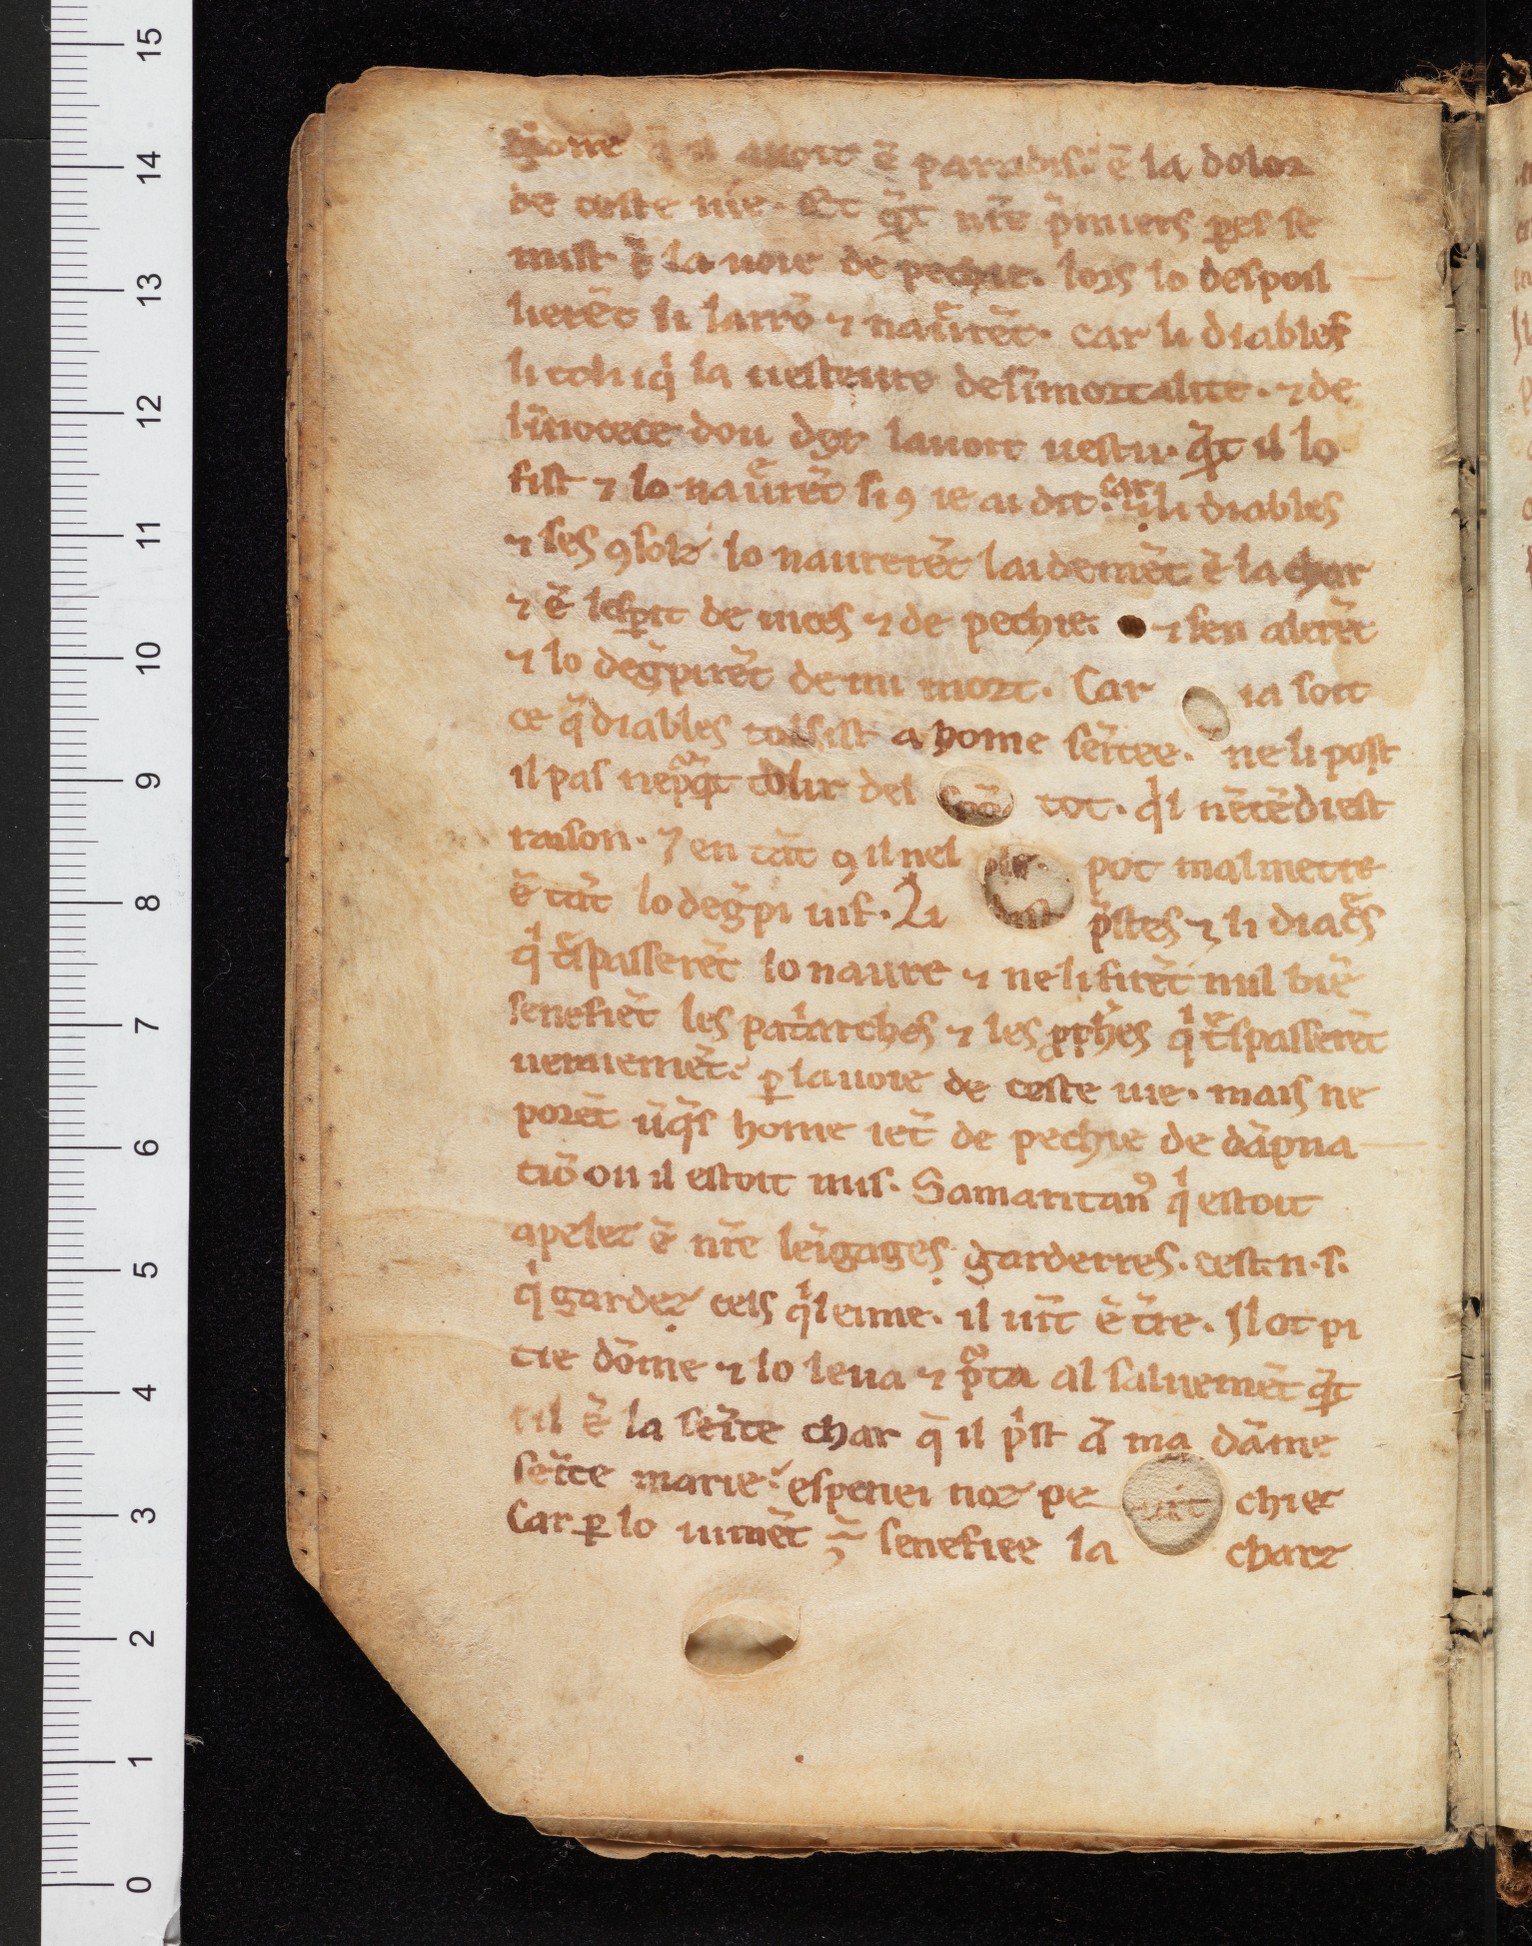 gloire q̄ il auoit ē paradis. ē la dolor
de ceste uie. Et q̄t nr̄e p̄miers ꝑes se
mist ē la uoie de pechie. lors lo despoil
lierēt li larrō ⁊ naurērēt. car li diables
li toli iq̇ la uesteure deſīmortalite. ⁊ de
līnocēce dou dex lauoit uestu. q̄t il lo
fist ⁊ lo naurērēt si ꝯ ie ai dit. car li diables
⁊ ses ꝯsolz lo naurerēt laidemēt ē la char
⁊ ē lesꝑit de uices ⁊ de pechie. ⁊ sen alerēt
⁊ lo deḡpirēt demi mort. Car ia soit
ce q̄ diables tolsist a home seītee. ne li post
il pas neꝑq̄t tolir del tot. q̇l nētēdiest
raison. ⁊ en tāt ꝯ il nel pot malmettre
ē tāt lo deḡpi uif. Li p̄stes ⁊ li diacēs
q̇ t̄spasserēt lo naure ⁊ ne li firēt nul biē
senefiēt les patarches ⁊ les ꝓph̄es q̇ t̄spasserēt
ueraiemēt. ꝑ la uoie de ceste uie. mais ne
porēt ūq̄s home iet̄ de pechie de dāpna
tiō ou il estoit mis. Samaritanꝰ q̇ estoit
apelez ē nr̄e leīgages garderres. cest. n. s.
q̇ gardez cels q̇l eime. il uīt ē t̄re. Il ot pi
tie dōme ⁊ lo leua ⁊ p̄ta al saluemēt q̄t
til ē la seīte char q̄ il ṗst ā ma dāme
seīte marie. espenei noz pe chiez
Car ꝑ lo iumēt ē senefiee la charz